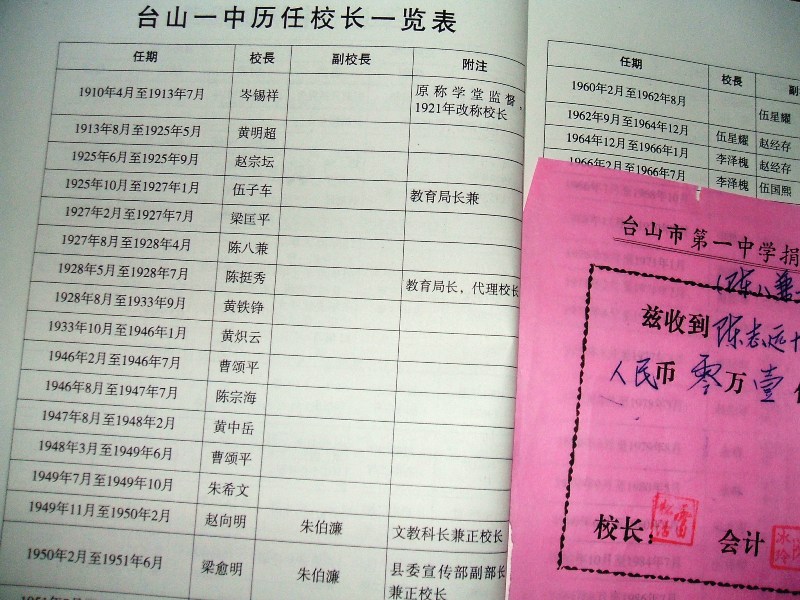 台山一中历任校长一览表
任期 校長 副校長 附注
1910年4月至1913年7月 岑锡祥 原称学堂监督，
1921年改称校长
1913年8月至1925年5月 黄明超
1925年6月至1925年9月 赵宗坛
1925年10月至1927年1月 伍子车 教育局长兼
1927年2月至1927年7月 梁匡平
1927年8月至1928年4月 陈八兼
1928年5月至1928年7月 陈挺秀 教育局长，代理校长
1928年8月至1933年9月 黄铁铮
1933年10月至1946年1月 黄炽云
1946年2月至1946年7月 曹颂平
1946年8月至1947年7月 陈宗海
1947年8月至1948年2月 黄中岳
1948年3月至1949年6月 曹颂平
1949年7月至1949年10月 朱希文
1949年11月至1950年2月 赵向明 朱伯濂 文教科长兼正校长
1950年2月至1951年6月 梁愈明 朱伯濂 县委宣传部副部长
兼正校长
任期 校長
1960年2月至1962年8月 伍星耀
1962年9月至1964年12月 伍星耀 赵经存
1964年12月至1966年1月 李泽槐 赵经存
1966年2月至1966年7月 李泽槐 伍国熙
台山市第一中学捐
陈八兼
兹收到陈志远
人民币零万壹
校长： 会计